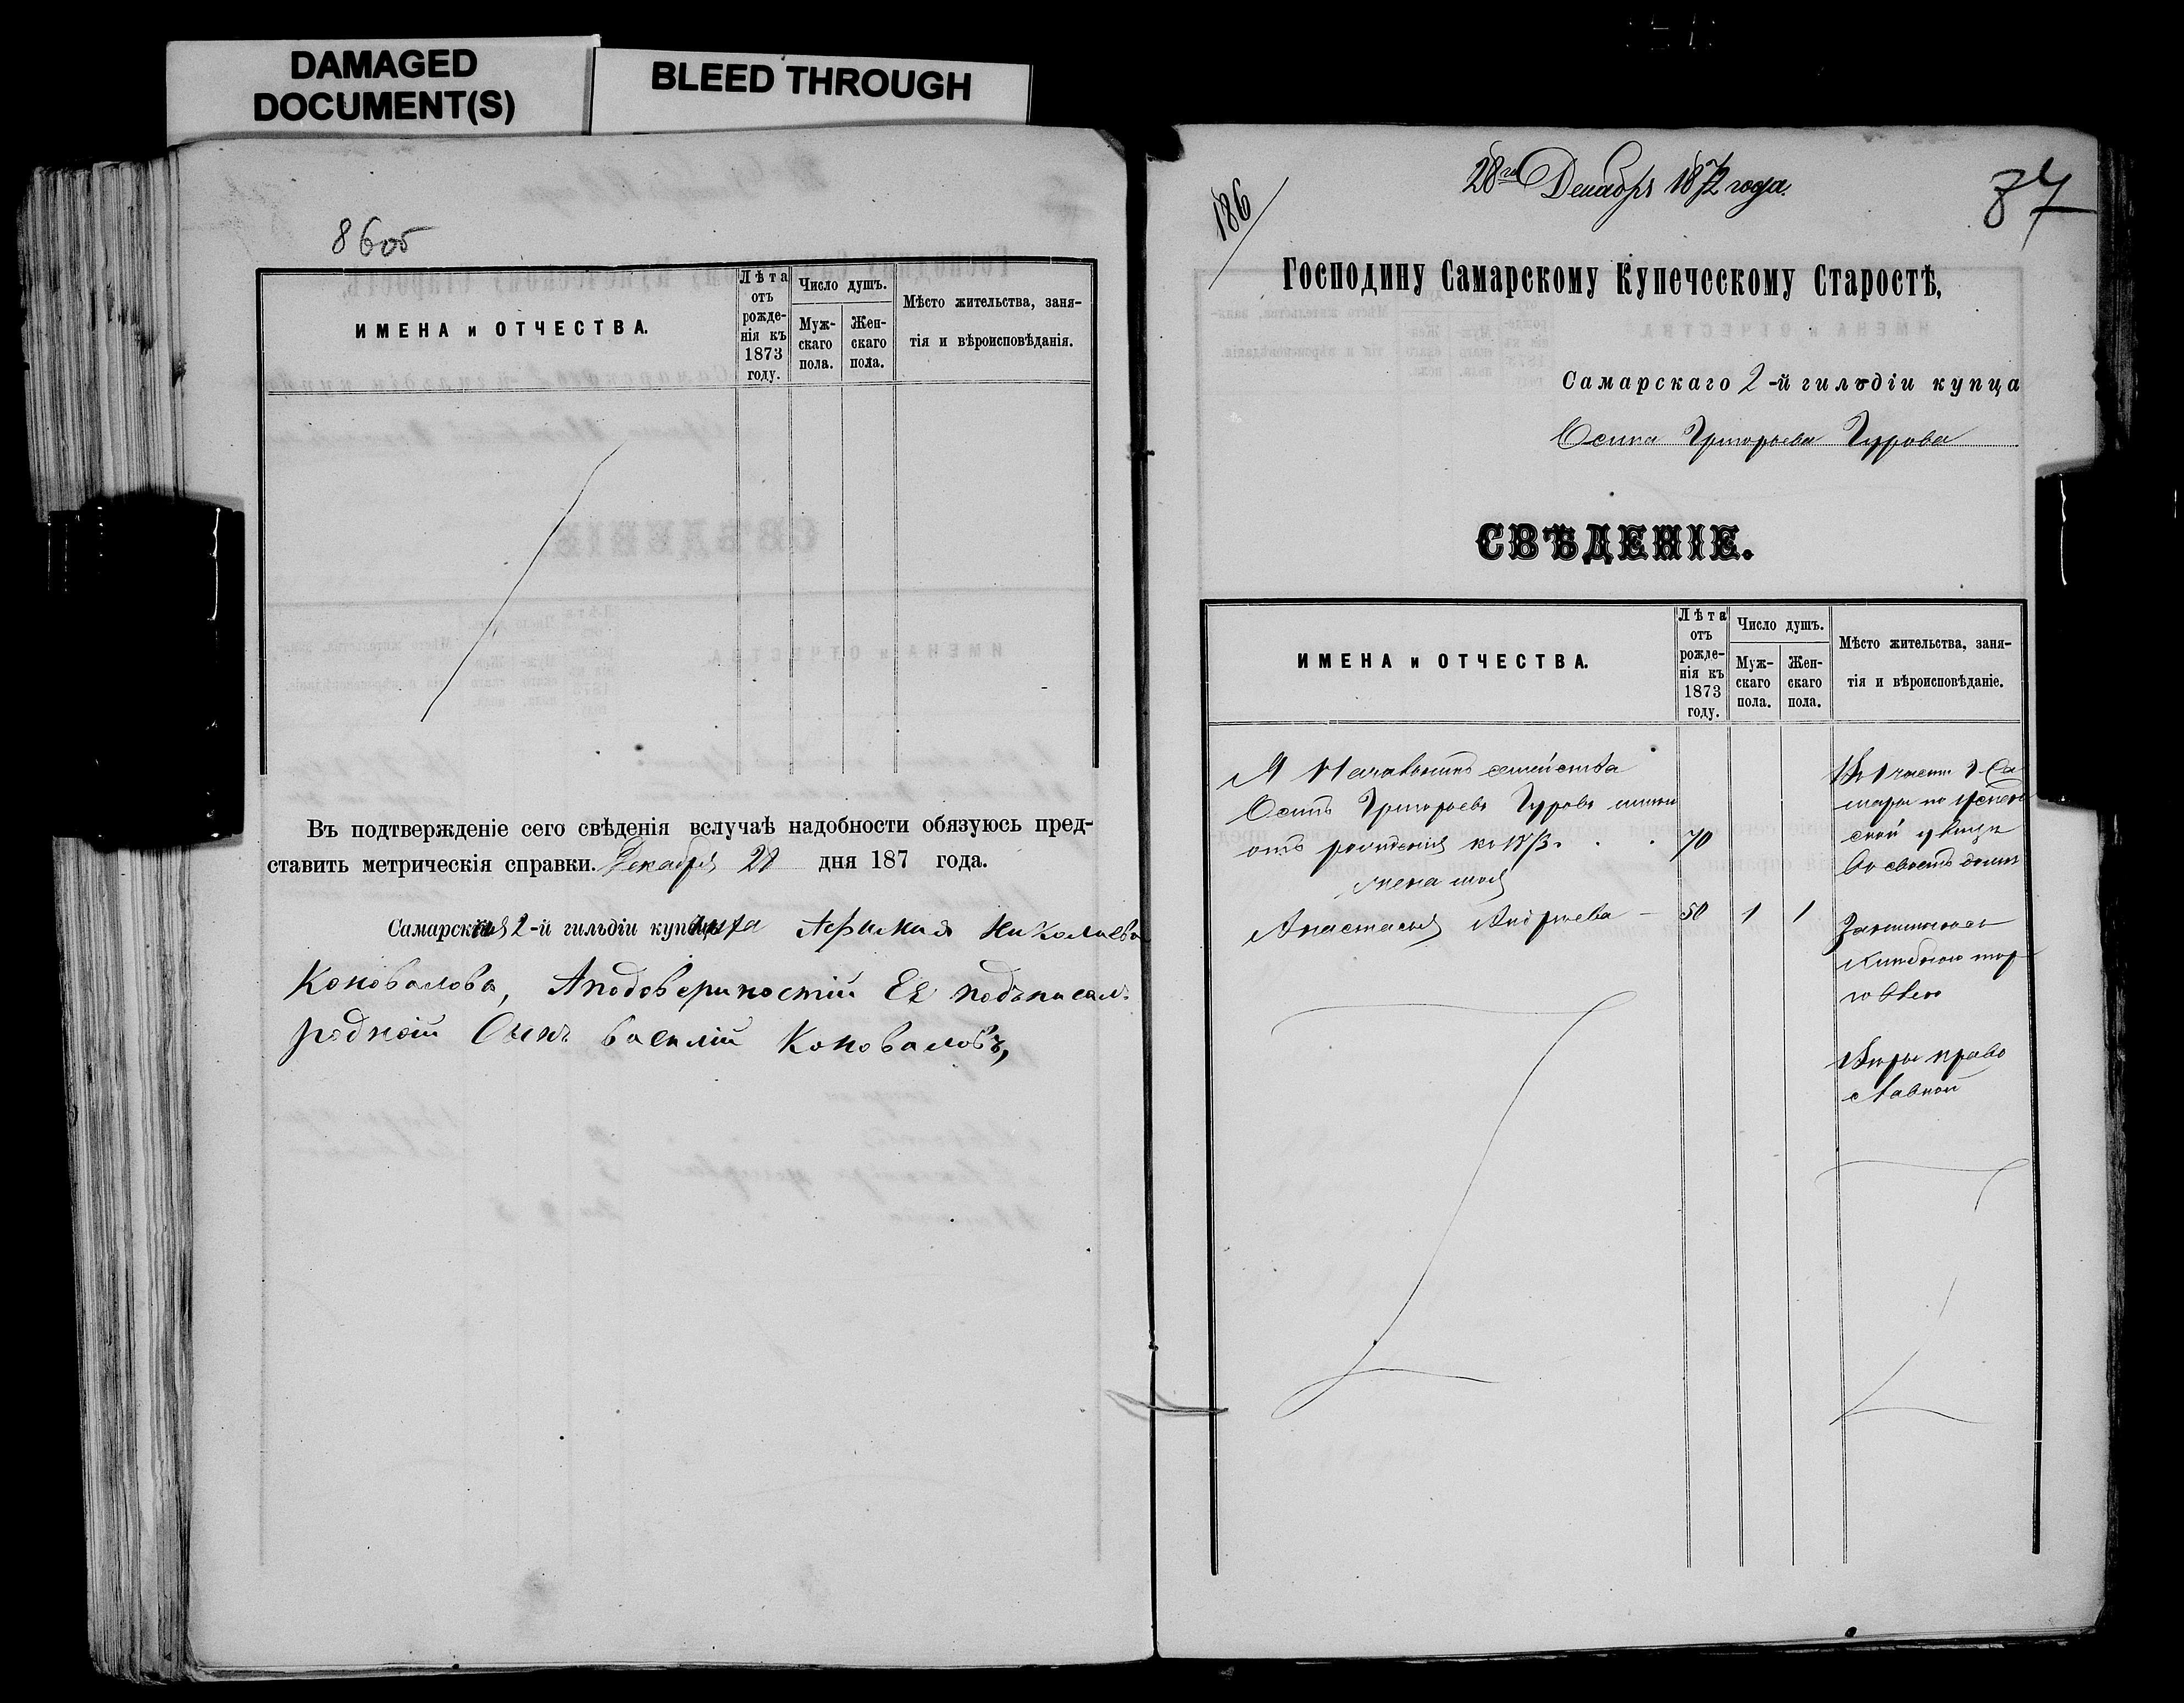 DAMAGED
DOCUMENT(S)
BLEED THROUGH
86об
ИМЕНА и ОТЧЕСТВА.
Лѣта
отъ
рожде-
нія къ
1873
году.
Число душъ.
Муж-
скаго
пола.
Жен-
скаго
пола.
Мѣсто жительства, заня-
тія и вѣроисповѣданія.
Въ подтвержденіе сего свѣденія вслучаѣ надобности обязуюсь пред-
ставить метрическія справки. Декабря 28 дня 187 года.
Самарская 2-й гильдіи купчиха Афимия Николаева
Коновалова, Аподоверностии Ее подъписалъ
родной Сынъ василий Коноваловъ,
186
28го Декабря 1872 года.
87
Господину Самарскому Купеческому Старостѣ,
Самарскаго 2-й гильдіи купца
Осипа Григорьева Гурова
СВѢДЕНІЕ.
ИМЕНА и ОТЧЕСТВА.
Лѣта
отъ
рожде-
нія къ
1873
году.
Число душъ.
Муж-
скаго
пола.
Жен-
скаго
пола.
Мѣсто жительства, заня-
тія и вѣроисповѣданіе.
Я Началникъ семейства
Осипъ Григорьевъ Гуровъ
отъ рождения къ 1873. . . 70
жена моя
Анастасья Андреева — 50 1 1
Въ 1 части г. Са
мары по Успен
ской улицы
во своемъ доме
Занимаюсь
хлебною тор
говлею
Веры право
славной